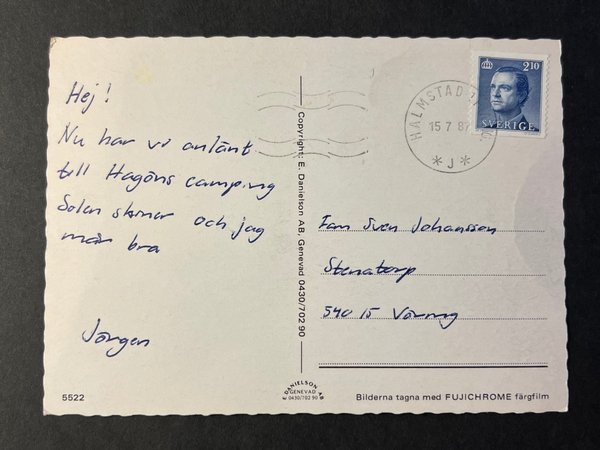 Hej!
Nu har vi anlänt
till Hagöns camping
Solen skiner och jag
mår bra
Jörgen
5522
Copyright: E. Danielson AB, Genevad 0430/702 90
2.10
SVERIGE
HALMSTAD
15 7 87
* J *
Fam Sven Johansson
Stenatorp
540 15 Väring
E DANIELSON AB
GENEVAD
0430/702 90
Bilderna tagna med FUJICHROME färgfilm